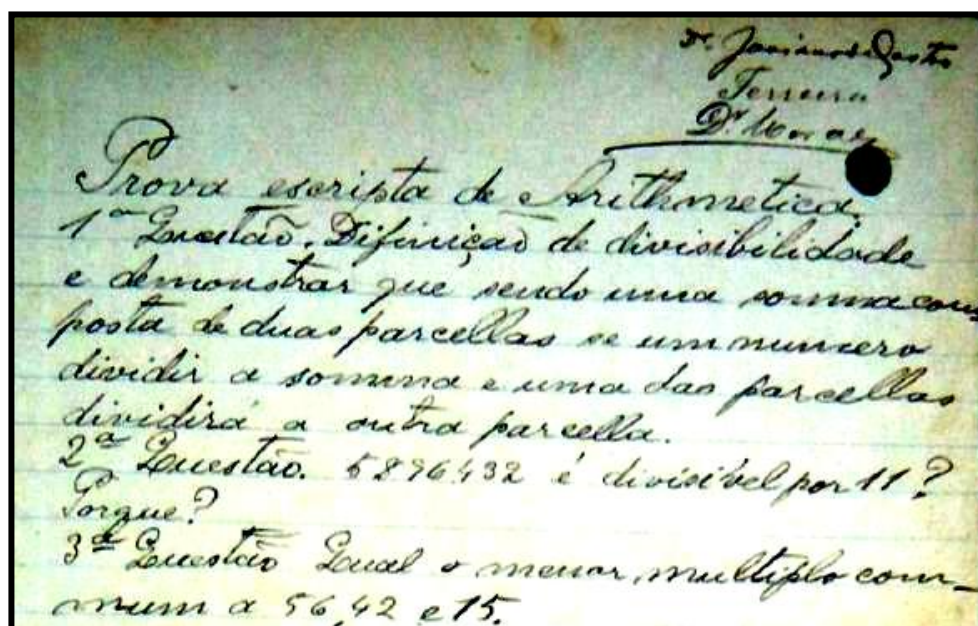 Ferreira
Dr. Moraes
Prova escripta de Arithmetica.
1ª Questão. Difinição de divisibilidade
e demonstrar que sendo uma somma com
posta de duas parcellas se um numero
dividir a somma e uma das parcellas
dividirá a outra parcella.
2ª Questão. 5896432 é divisivel por 11?
Porque?
3ª Questão Qual o menor multiplo com-
mum a 56,42 e 15.